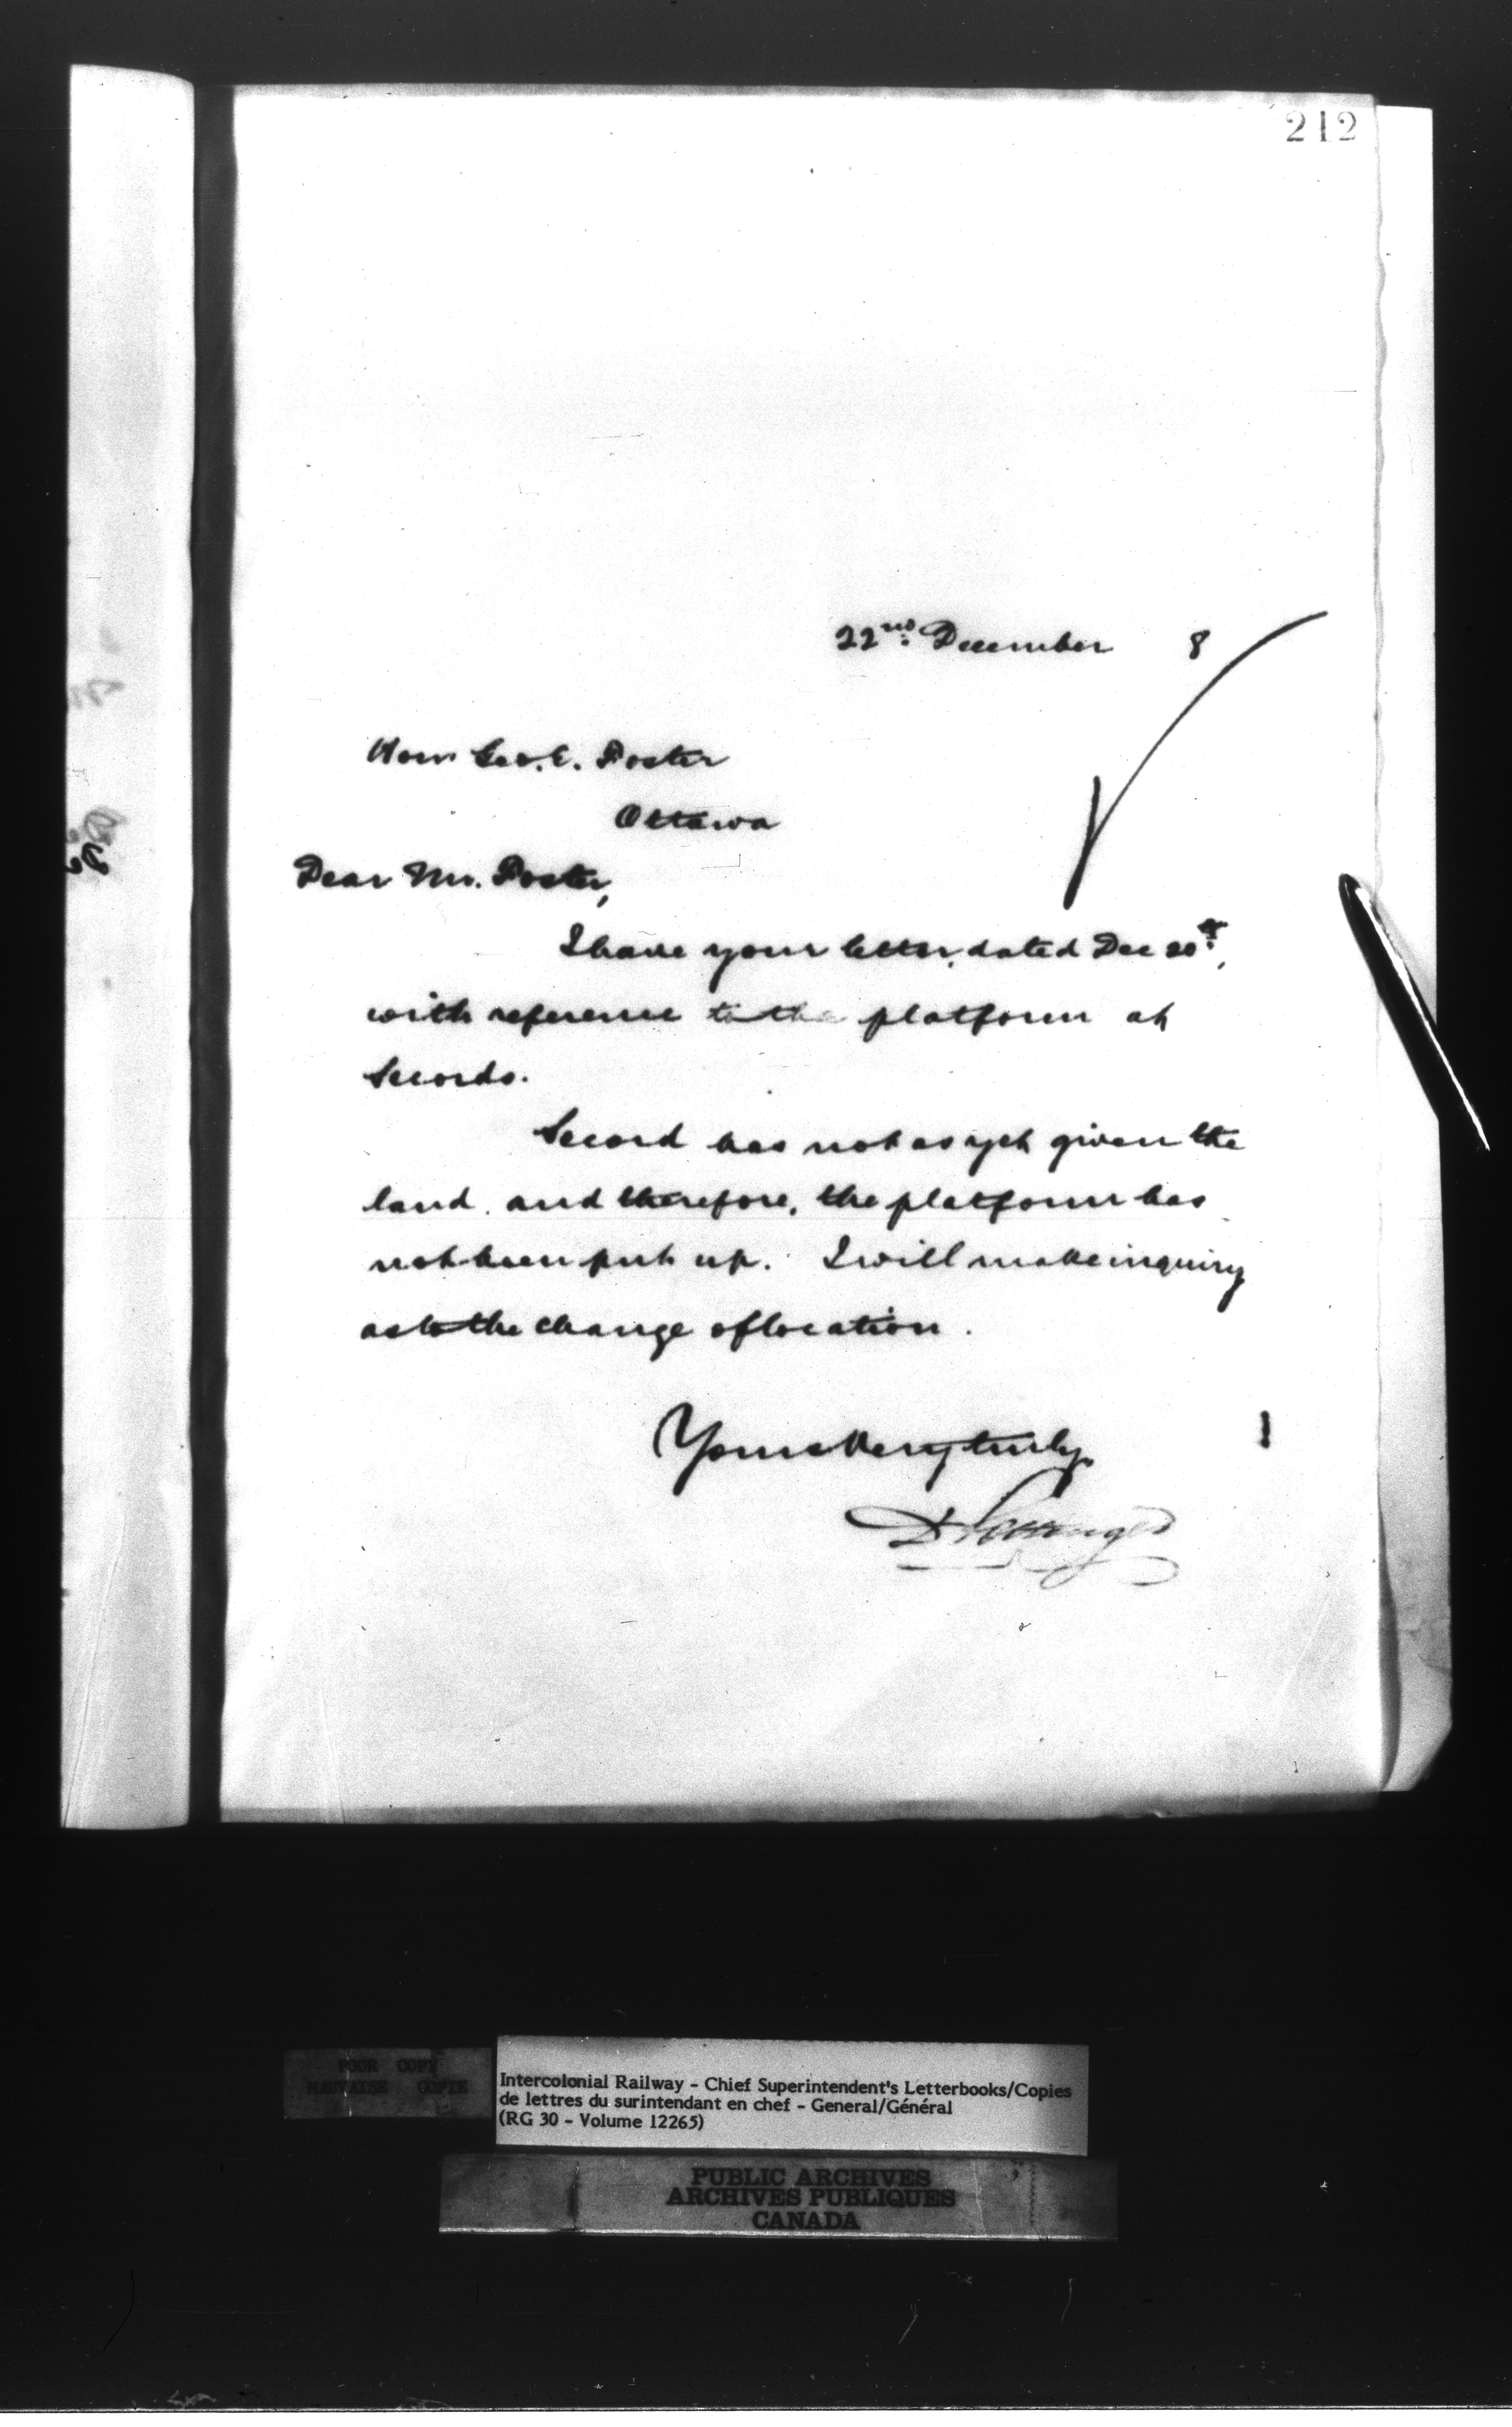 212
22nd December 8
Hon Geo. E. Foster
Ottawa
Dear Mr. Foster,
I have your letter, dated Dec 20th,
with reference to the platform at
Secords.
Secord has not as yet given the
land, and therefore, the platform has
not been put up. I will make inquiry
as to the change of location.
Yours very truly
D Pottinger
POOR COPY
MAUVAISE COPIE
Intercolonial Railway - Chief Superintendent's Letterbooks/Copies
de lettres du surintendant en chef - General/Général
(RG 30 - Volume 12265)
PUBLIC ARCHIVES
ARCHIVES PUBLIQUES
CANADA